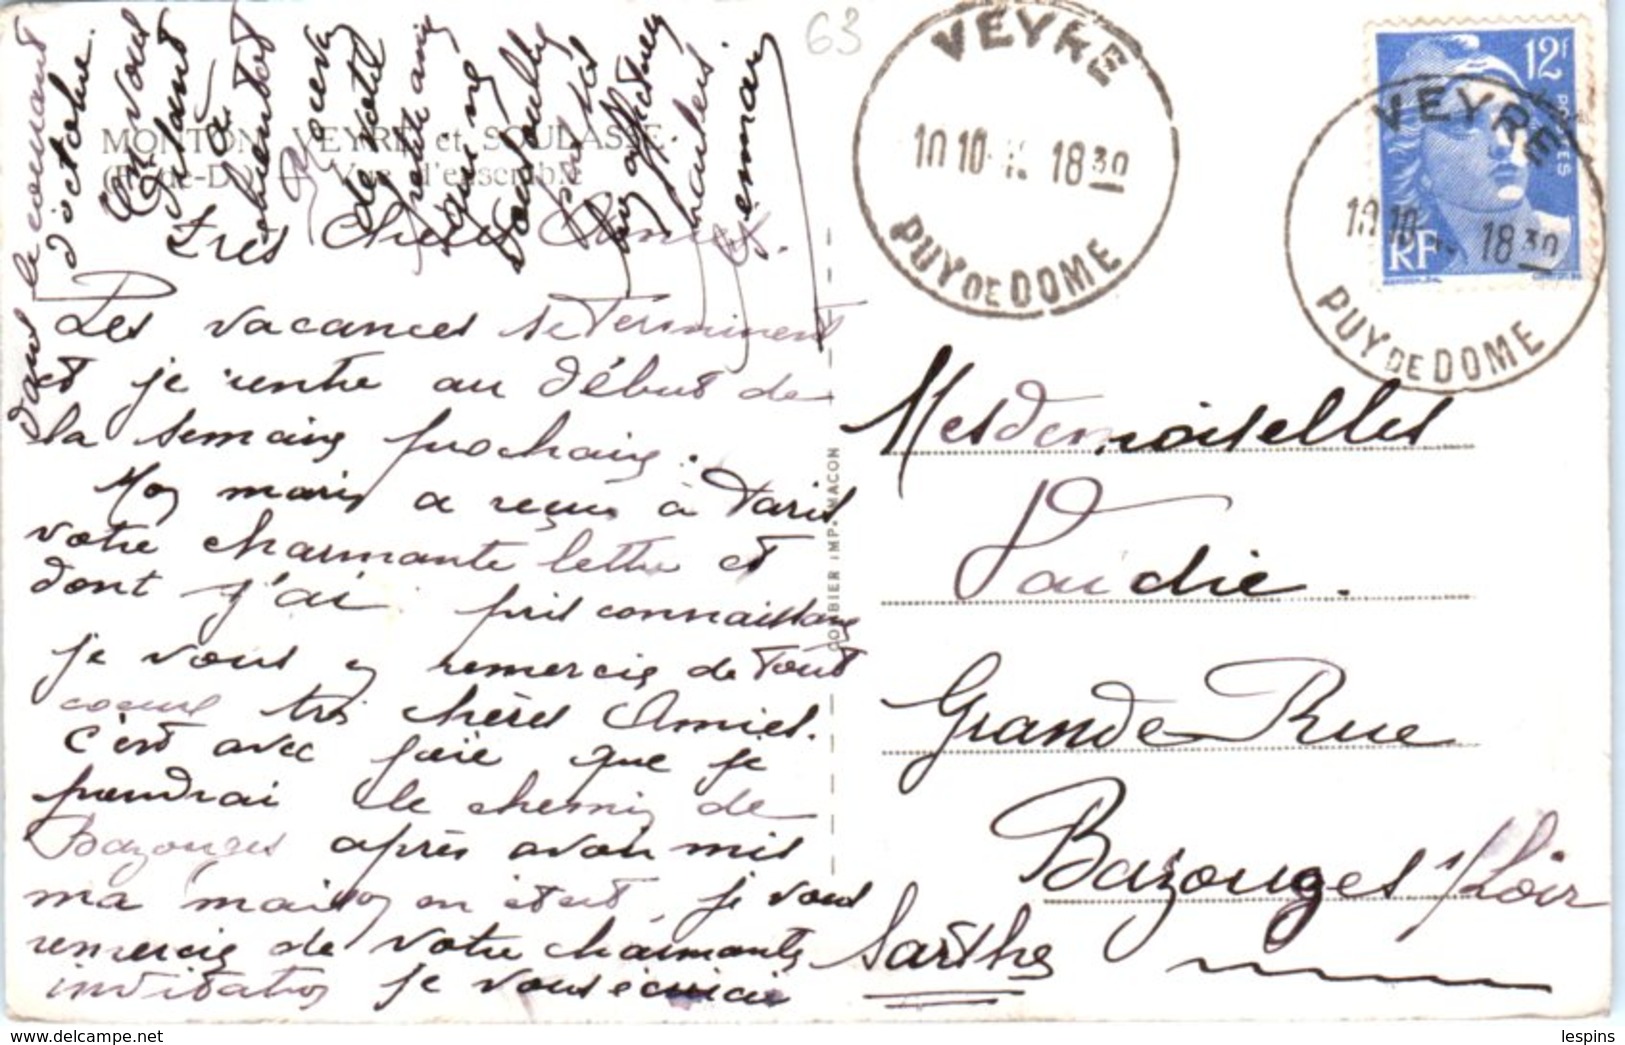 63
VEYRE
10 10 18 30
PUY DE DOME
12f
POSTES
RF
VEYRE
10 10 18 30
PUY DE DOME
MONTON, VEYRE et SOULASSE
(P.-de-D.) — Vue d'ensemble
Très Chères Amies.
Les vacances se terminent
et je rentre au début de
la semaine prochaine.
Mon mari a reçu à Paris
votre charmante lettre et
dont j'ai pris connaissance
je vous en remercie de tout
coeur très chères Amies.
c'est avec joie que je
prendrai le chemin de
Bazouges après avoir mis
ma maison en état, je vous
remercie de votre charmante
invitation je vous écrirai
dans le courant
d'octobre.
En vous
disant
à
bientôt
recevez
de votre
petite amie
qui ne
vous oublie
pas ses
affectueux
baisers
Germaine
COMBIER IMP. MACON
Mesdemoiselles
Vaidie.
Grande Rue
Bazouges s/Loir
Sarthe
lespins